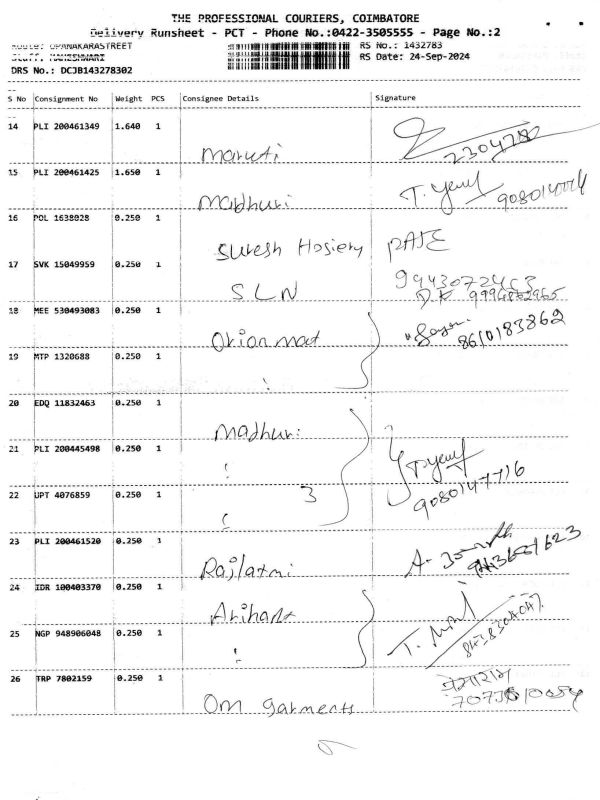 THE PROFESSIONAL COURIERS, COIMBATORE
Delivery Runsheet - PCT - Phone No.:0422-3505555 - Page No.:2
Route: OPANAKARASTREET RS No.: 1432783
Staff: MAHESHWARI RS Date: 24-Sep-2024
DRS No.: DCJB143278302
S No Consignment No Weight PCS Consignee Details Signature
14 PLI 200461349 1.640 1
Maruti
15 PLI 200461425 1.650 1
Madhuri T.
16 POL 1638028 0.250 1
Suresh Hosiery
17 SVK 15049959 0.250 1
SLN
18 MEE 530493083 0.250 1
Orion mad 8610183862
19 MTP 1320688 0.250 1
20 EDQ 11832463 0.250 1
Madhuri
21 PLI 200445498 0.250 1
22 UPT 4076859 0.250 1
3 9080147716
23 PLI 200461520 0.250 1
Rajlaxmi
24 IDR 100403370 0.250 1
Arihant
25 NGP 948906048 0.250 1
26 TRP 7802159 0.250 1
Om garments